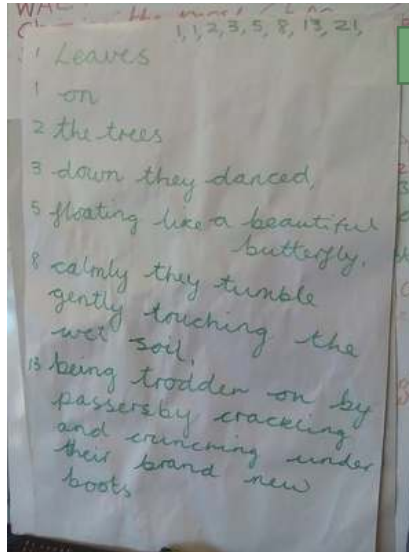 WAL
1, 1, 2, 3, 5, 8, 13, 21,
1 Leaves
1 on
2 the trees
3 down they danced,
5 floating like a beautiful
butterfly.
8 calmly they tumble
gently touching the
wet soil.
13 being trodden on by
passersby crackling
and crunching under
their brand new
boots